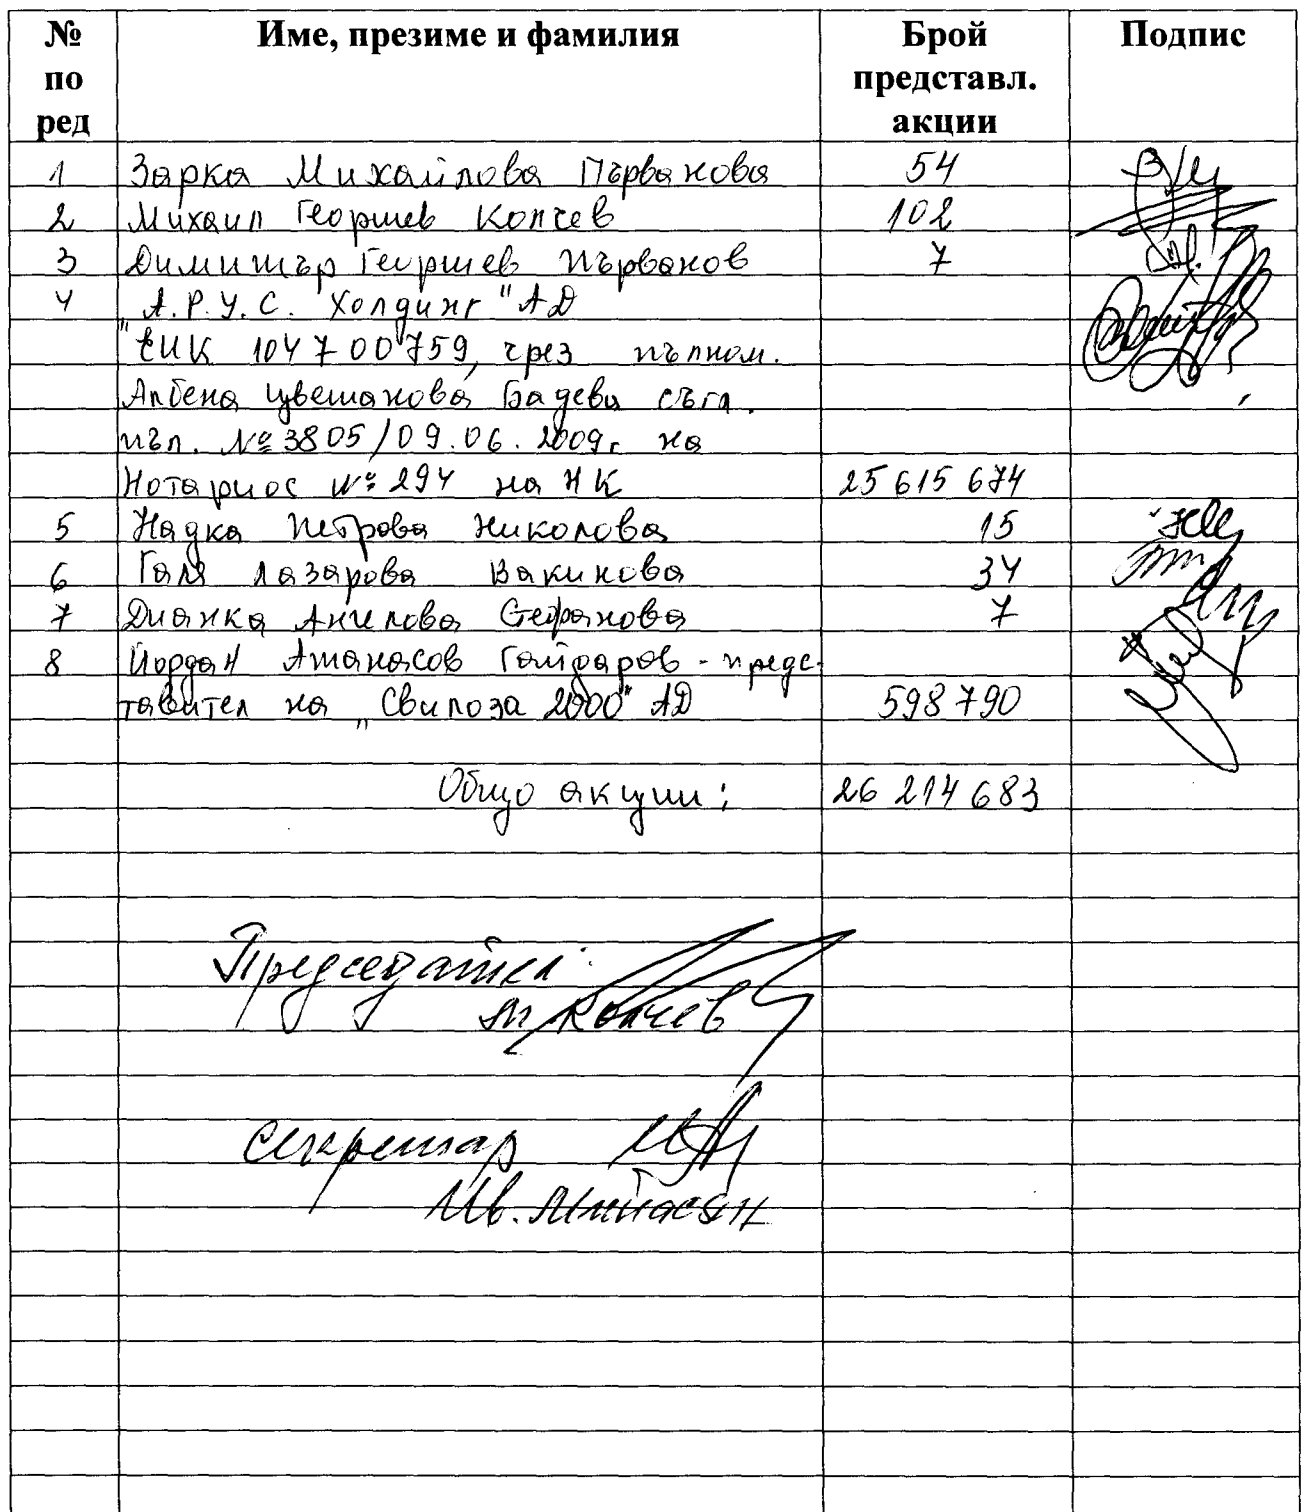 № по ред Име, презиме и фамилия Брой представл. акции Подпис
1 Зарка Михайлова Първанова 54
2 Михаил Георгиев Колчев 102
3 Димитър Георгиев Първанов 7
4 "А.Р.У.С. Холдинг" АД
ЕИК 104700759, чрез пълном.
Албена Цветанова Бадева съгл.
пъл. № 3805/09.06.2009г на
Нотариос № 294 на НК 25 615 674
5 Надка Петрова Николова 15
6 Галя Лазарова Вакинова 34
7 Дианка Ангелова Стефанова 7
8 Йордан Атанасов Гайдаров - предс-
тавител на "Свилоза 2000" АД 598 790
Общо акции: 26 214 683
Председател:
М Колчев
Секретар
Ив.